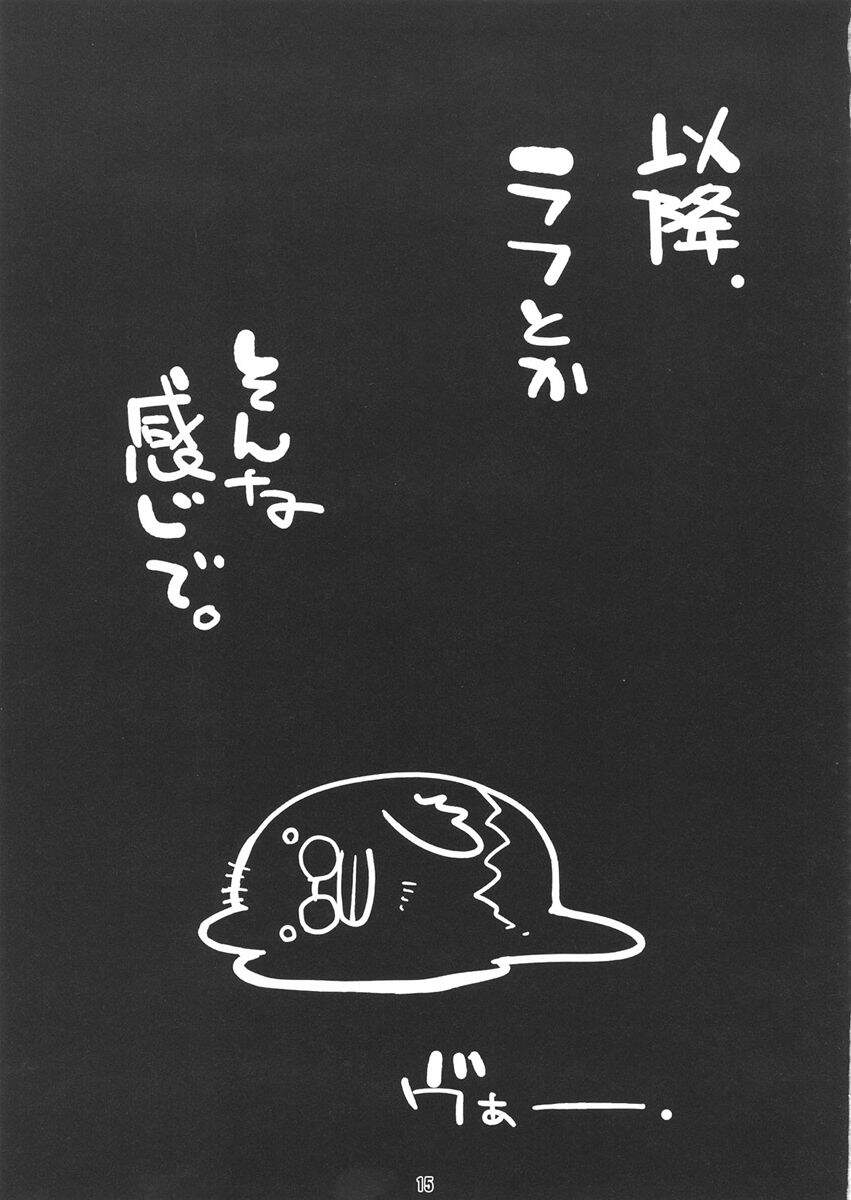 以降.
ラフとか
そんな
感じで。
ヴぁー.
15